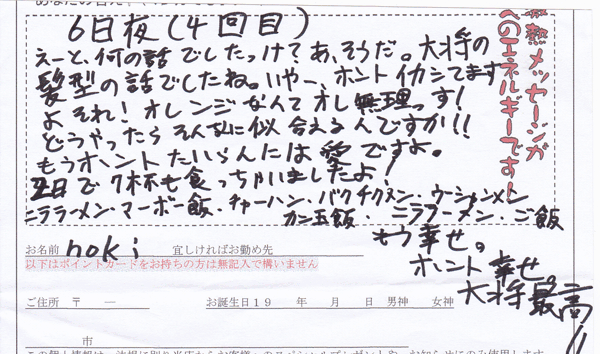 6日夜(4回目)
えーと、何の話でしたっけ?あ、そうだ。大将の
髪型の話でしたね。いやー、ホントイカシてます
よそれ!オレンジなんてオレ無理っす!
どうやったらそんなに似合えるんですか!!
もうホントたいらんには愛ですよ。
2日で7杯も食っちゃいましたよ!
ニララーメン・マーボー飯・チャーハン・バクチクメン・ウーシャンメン
カニ玉飯・ニララーメン・ご飯
もう幸せ。
ホント幸せ。
大将最高!!
熱メッセージが
へのエネルギーです!
お名前 noki 宜しければお勤め先
以下はポイントカードをお持ちの方は無記入で構いません
ご住所 〒 ― お誕生日19 年 月 日 男神 女神
市